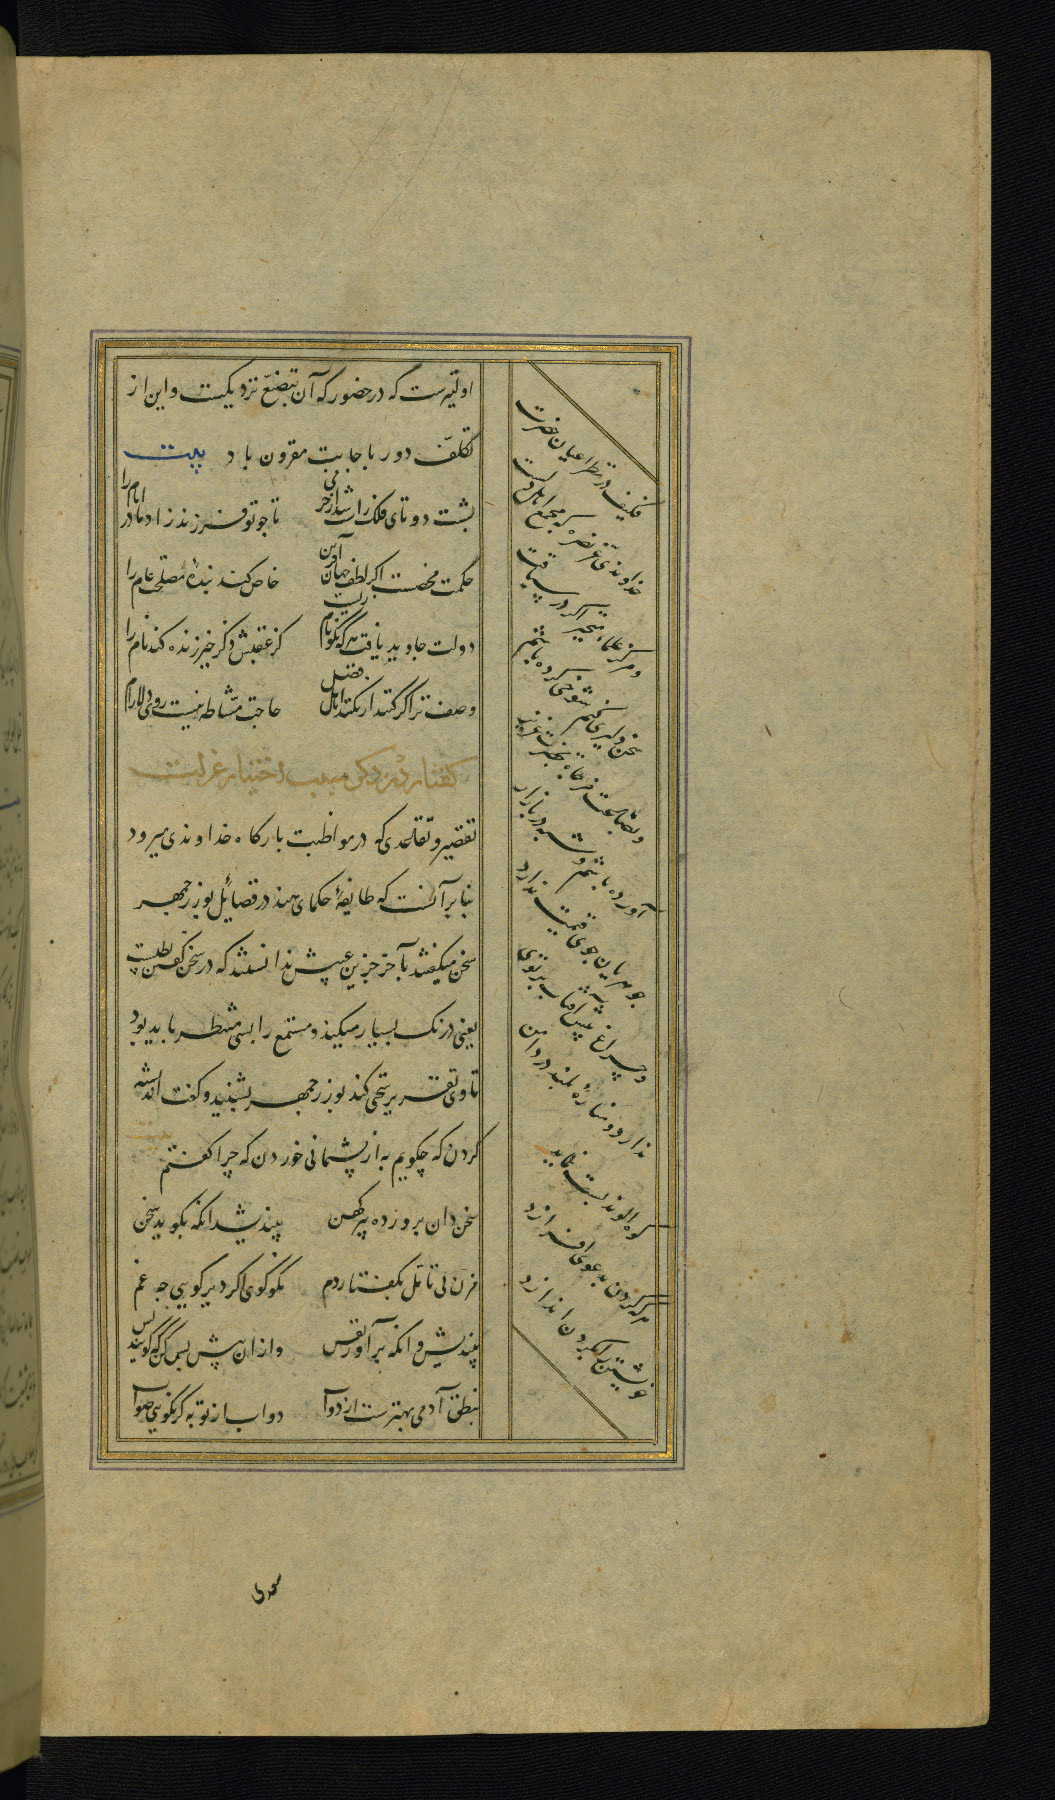 اولیترست که در حضور که آن بتصنع نزدیکست و این از
تکلف دور باجابت مقرون باد بیت
پشت دوتای فلک راست شد از خرمی تا چو تو فرزند زاد مادر ایام را
حکمت محضست اگر لطف جهان آفرین خاص کند بندهٔ مصلحت عام را
دولت جاوید یافت هرکه نکونام زیست کز عقبش ذکر خیر زنده کند نام را
وصف ترا گر کنند ار نکنند اهل فضل حاجت مشاطه نیست روی دلارام را
گفتار در ذکر سبب اختیار عزلت
تقصیر و تقاعدی که در مواظبت بارگاه خداوندی میرود
بنابر آنست که طایفهٔ حکمای هند در فضایل بوزرجمهر
سخن میگفتند بآخر جزین عیبش ندانستند که در سخن گفتن بطیست
یعنی درنگ بسیار میکند و مستمع را بسی منتظر باید بود
تا وی تقریر سخنی کند بوزرجمهر بشنید و گفت اندیشه
کردن که چگویم به از پشیمانی خوردن که چرا گفتم بیت
سخن دان پرورده پیر کهن بیندیشد آنگه بگوید سخن
مزن بی تأمل بگفتار دم نکو گوی اگر دیر گویی چه غم
بیندیش و آنگه برآور نفس وزان پیش بس کن که گویند بس
بنطق آدمی بهترست از دواب دواب از تو به گر نگویی صواب
فکیف در نظر اعیان حضرت
خداوندی عز نصره که مجمع اهل دلست
و مرکز علماء متبحر اگر در سیاقت
سخن دلیری کنم شوخی کرده باشم
و بضاعت مزجاة بحضرت عزیز
آورده باشم و شبه در بازار
جوهریان جوی قیمت ندارد
و چراغ پیش آفتاب پرتوی
ندارد و منارهٔ بلند در دامن
کوه الوند پست نماید
هرکه گردن بدعوی افرازد
خویشتن را بگردن اندازد
سعدی